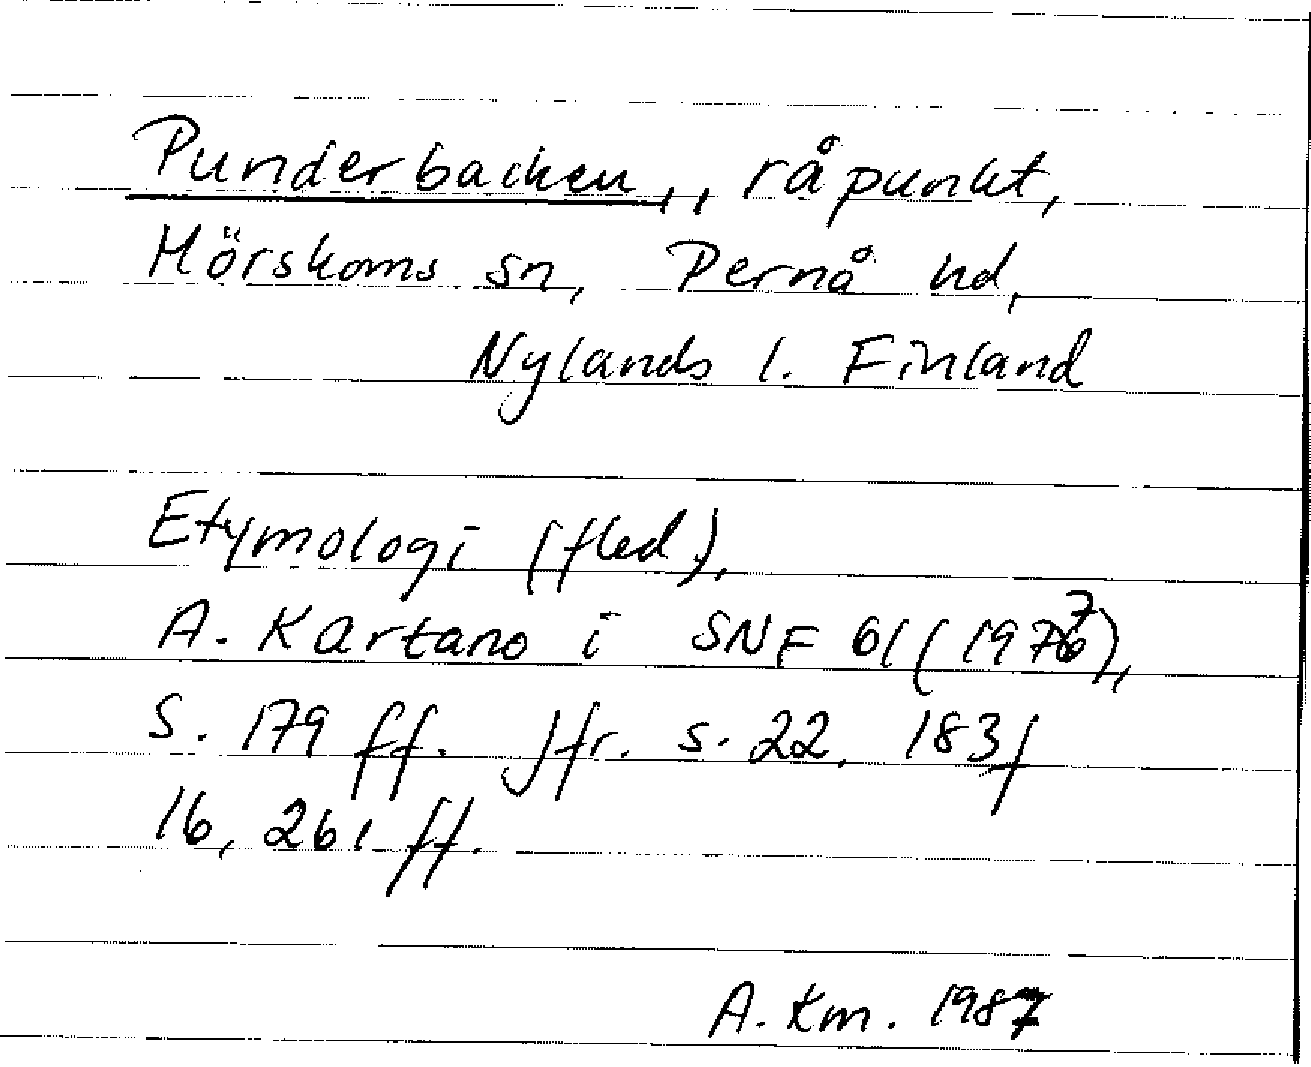 Punderbacken,, råpunkt,
Mörskoms sn, Pernå hd,
Nylands l. Finland
Etymologi (fled.),
A. Kartano i SNF 61 (1977),
S. 179 ff. Jfr. s. 22, 183f
16, 261 ff.
A. Km. 1987